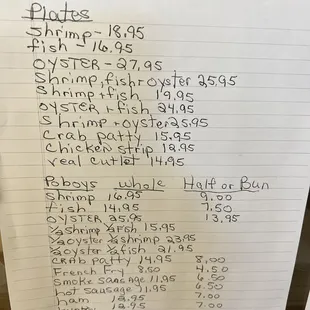 Plates
Shrimp - 18.95
fish - 16.95
OYSTER - 27.95
Shrimp, fish + oyster 25.95
Shrimp + fish 19.95
OYSTER + fish 24.95
Shrimp + oyster 25.95
Crab patty 15.95
Chicken strip 12.95
veal cutlet 14.95
Poboys whole Half or Bun
Shrimp 16.95 9.00
fish 14.95 7.50
OYSTER 25.95 13.95
½ Shrimp ½ fish 15.95
½ oyster ½ shrimp 23.95
½ oyster ½ fish 21.95
CRAB patty 14.95 8.00
French Fry 8.50 4.50
Smoke sausage 11.95 6.50
hot sausage 11.95 6.50
ham 12.95 7.00
12.95 7.00